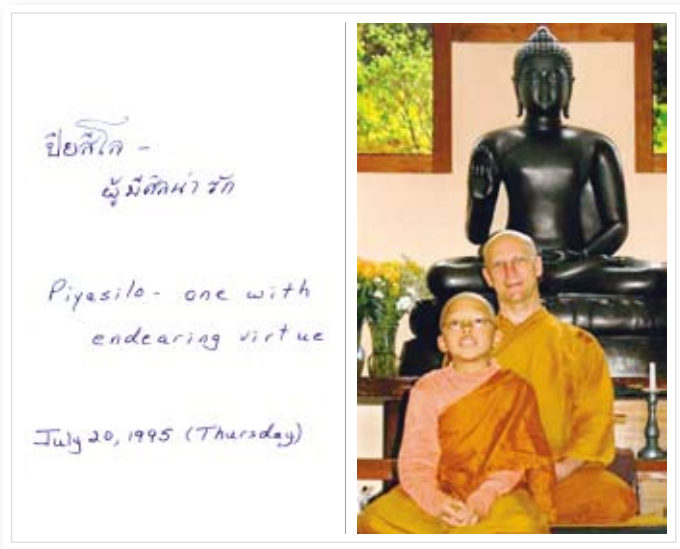 ปิยสีโล -
ผู้มีศีลน่ารัก
Piyasilo - one with
endearing virtue
July 20, 1995 (Thursday)